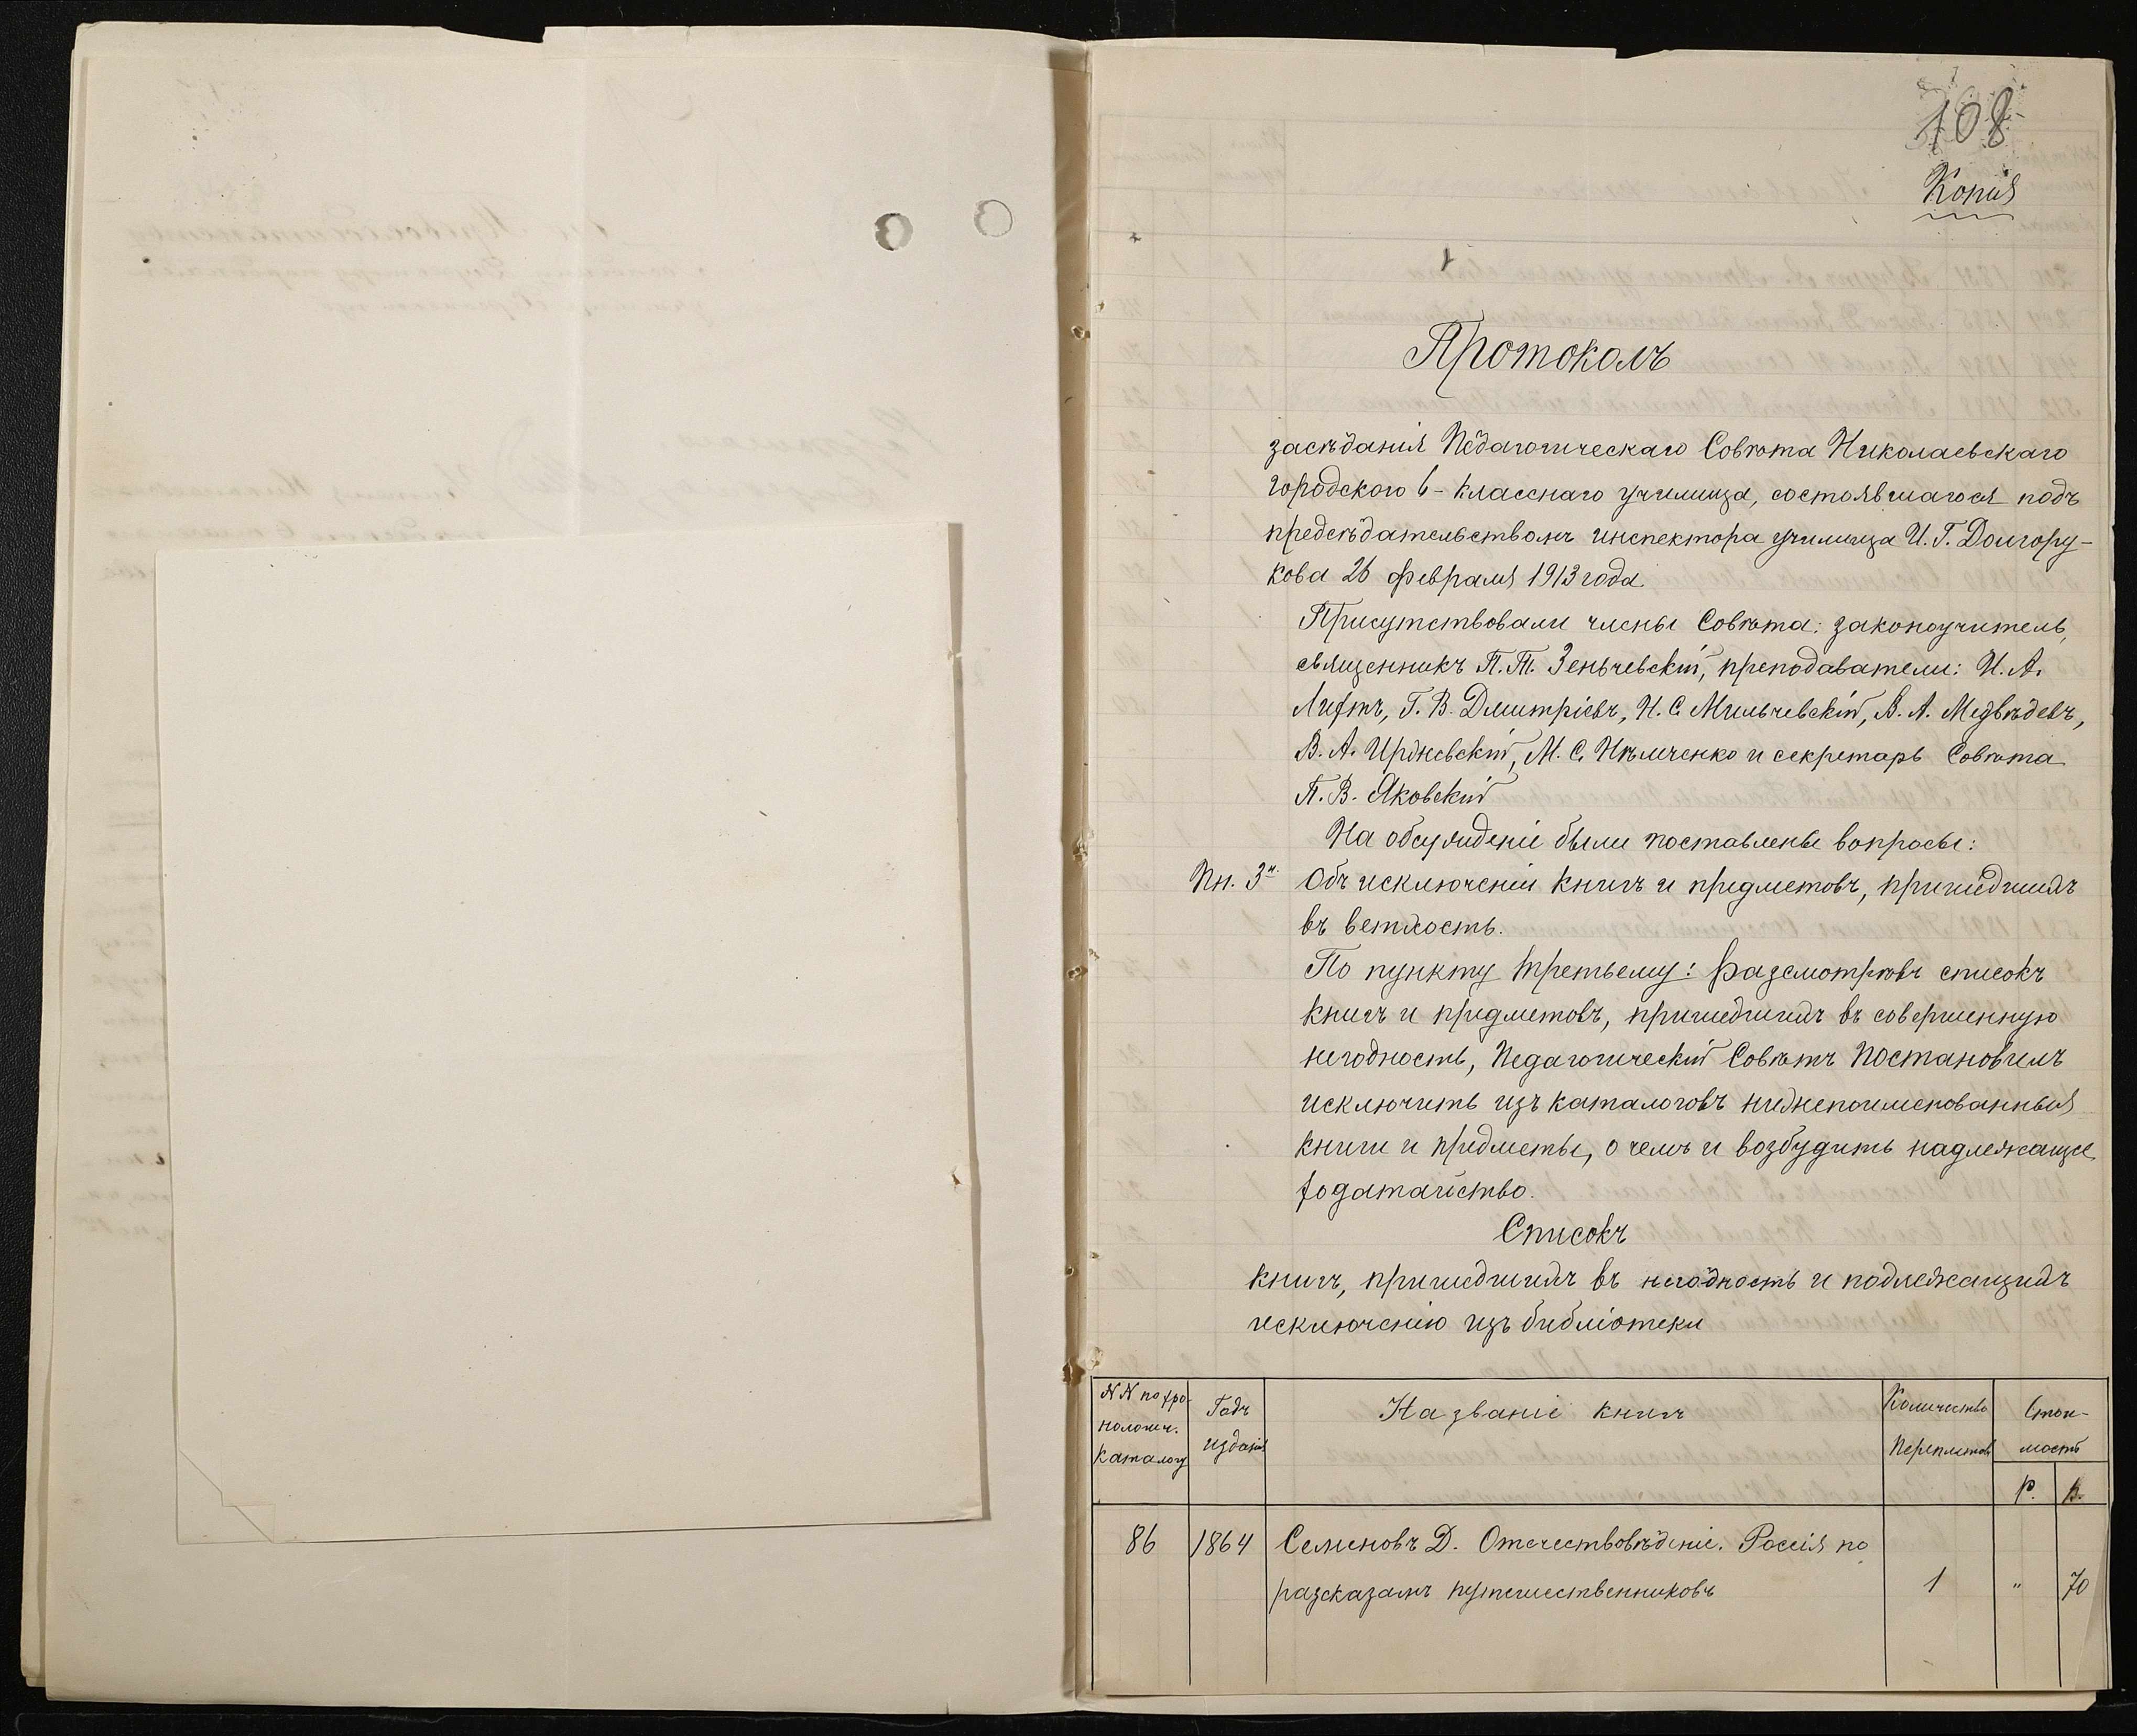 108
Копія
Протоколъ
засѣданія Педагогическаго Совѣта Николаевскаго
городского 6-класснаго училища, состоявшагося подъ
предсѣдательствомъ инспектора училища И. Г. Долгору-
кова 26 февраля 1913 года.
Присутствовали члены Совѣта: законоучитель,
священникъ П. Т. Зеньчевскій, преподаватели: И. А.
Лифтъ, Г. В. Дмитріевъ, И. С. Мильчевскій, В. А. Медвѣдевъ,
В. А. М. С. Нѣмченко и секретарь Совѣта
П. В. Яковскій
На обсужденіе были поставлены вопросы:
Пн. 3й. Объ исключеніи книгъ и предметовъ, пришедшихъ
въ ветхость.
По пункту третьему: Разсмотрѣвъ списокъ
книгъ и предметовъ, пришедшихъ въ совершенную
негодность, Педагогическій Совѣтъ постановилъ
исключить изъ каталоговъ нижепоименованныя
книги и предметы, о чемъ и возбудить надлежащее
ходатайство.
Списокъ
книгъ, пришедшихъ въ негодность и подлежащихъ
исключенію изъ библіотеки
NN по хро-
нологич.
каталогу
Годъ
изданія
Названіе книгъ
Количество
переплетовъ
Стои-
мость
Р. К.
86 1864 Семеновъ Д. Отечествовѣдѣніе. Россія по
разсказамъ путешественниковъ 1 " 70